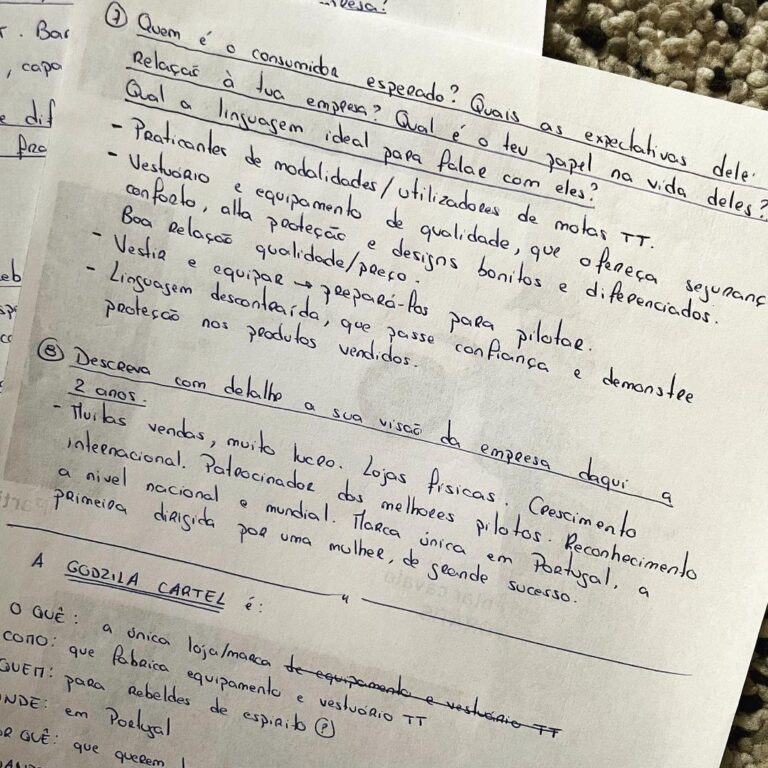 presa!
⑦ Quem é o consumidor esperado? Quais as expectativas dele.
Relação à tua empresa? Qual é o teu papel na vida deles?
Qual a linguagem ideal para falar com eles?
- Praticantes de modalidades/utilizadores de motas TT.
- Vestuário e equipamento de qualidade, que ofereça seguranç
conforto, alta proteção e designs bonitos e diferenciados.
Boa relação qualidade/preço.
- Vestir e equipar → prepará-los para pilotar.
- Linguagem descontraída, que passe confiança e demonstre
proteção nos produtos vendidos.
⑧ Descreva com detalhe a sua visão da empresa daqui a
2 anos.
- Muitas vendas, muito lucro. Lojas físicas. Crescimento
internacional. Patrocinador dos melhores pilotos. Reconhecimento
a nível nacional e mundial. Marca única em Portugal, a
primeira dirigida por uma mulher, de grande sucesso.
A GODZILA CARTEL é:
O QUÊ: a única loja/marca de equipamento e vestuário TT
COMO: que fabrica equipamento e vestuário TT
QUEM: para rebeldes de espirito (?)
ONDE: em Portugal
OR QUÊ: que querem
. Bar
, capa
e dif